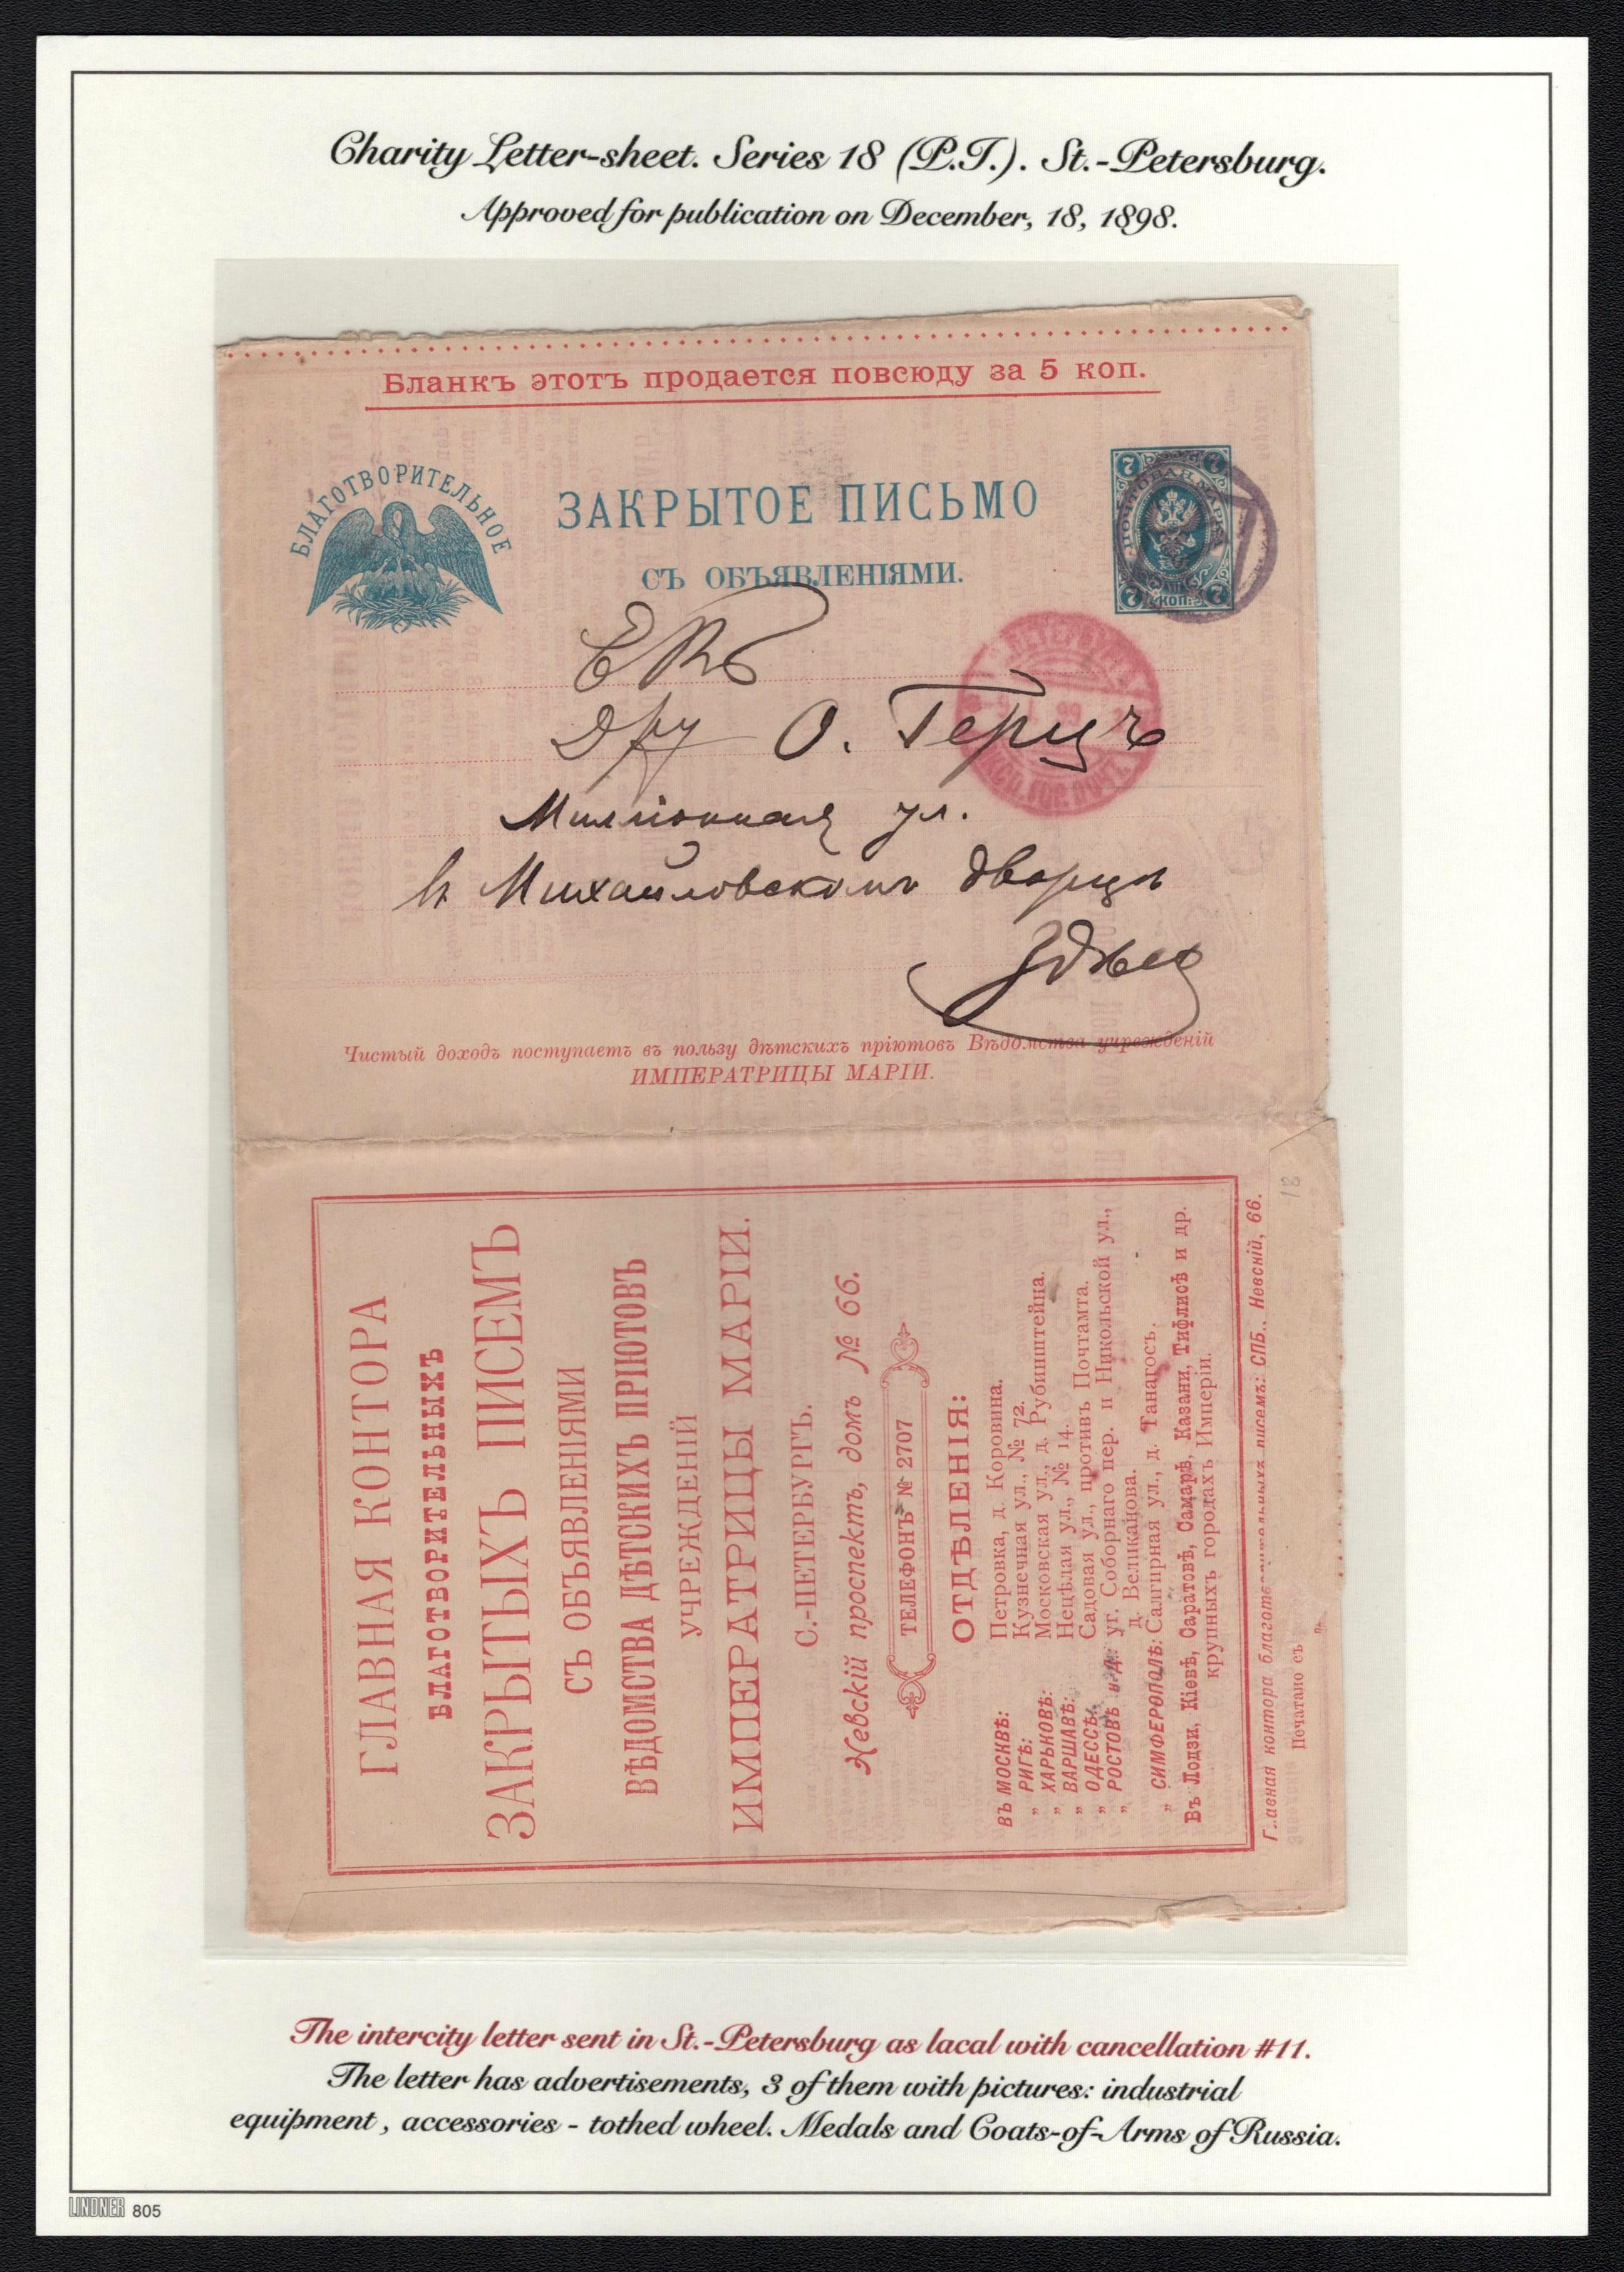 Charity Letter-sheet. Series 18 (P.T.). St.-Petersburg.
Approved for publication on December, 18, 1898.
Бланкъ этотъ продается повсюду за 5 коп.
БЛАГОТВОРИТЕЛЬНОЕ
ЗАКРЫТОЕ ПИСЬМО
СЪ ОБЪЯВЛЕНІЯМИ.
7 7
ПОЧТОВАЯ МАРКА
7 КОП. 7
О. Герцъ
Милліонная ул.
въ Михайловскомъ дворцѣ
Здѣсь
Чистый доходъ поступаетъ въ пользу дѣтскихъ пріютовъ Вѣдомства учрежденій
ИМПЕРАТРИЦЫ МАРІИ.
18
ГЛАВНАЯ КОНТОРА
БЛАГОТВОРИТЕЛЬНЫХЪ
ЗАКРЫТЫХЪ ПИСЕМЪ
СЪ ОБЪЯВЛЕНІЯМИ
ВѢДОМСТВА ДѢТСКИХЪ ПРІЮТОВЪ
УЧРЕЖДЕНІЙ
ИМПЕРАТРИЦЫ МАРІИ.
С.-ПЕТЕРБУРГЪ.
Невскій проспектъ, домъ № 66.
ТЕЛЕФОНЪ № 2707
ОТДѢЛЕНІЯ:
ВЪ МОСКВѢ: Петровка, д. Коровина.
„ РИГѢ: Кузнечная ул., № 72.
„ ХАРЬКОВѢ: Московская ул., д. Рубинштейна.
„ ВАРШАВѢ: Нецѣлая ул., № 14.
„ ОДЕССѢ: Садовая ул., противъ Почтамта.
„ РОСТОВѢ н-Д.: уг. Соборнаго пер. и Никольской ул.,
д. Великанова.
„ СИМФЕРОПОЛѢ: Салгирная ул., д. Танагосъ.
Въ Лодзи, Кіевѣ, Саратовѣ, Самарѣ, Казани, Тифлисѣ и др.
крупныхъ городахъ Имперіи.
Главная контора благотворительныхъ писемъ: СПБ., Невскій, 66.
Печатано съ
The intercity letter sent in St.-Petersburg as lacal with cancellation #11.
The letter has advertisements, 3 of them with pictures: industrial
equipment , accessories - tothed wheel. Medals and Coats-of-Arms of Russia.
LINDNER 805